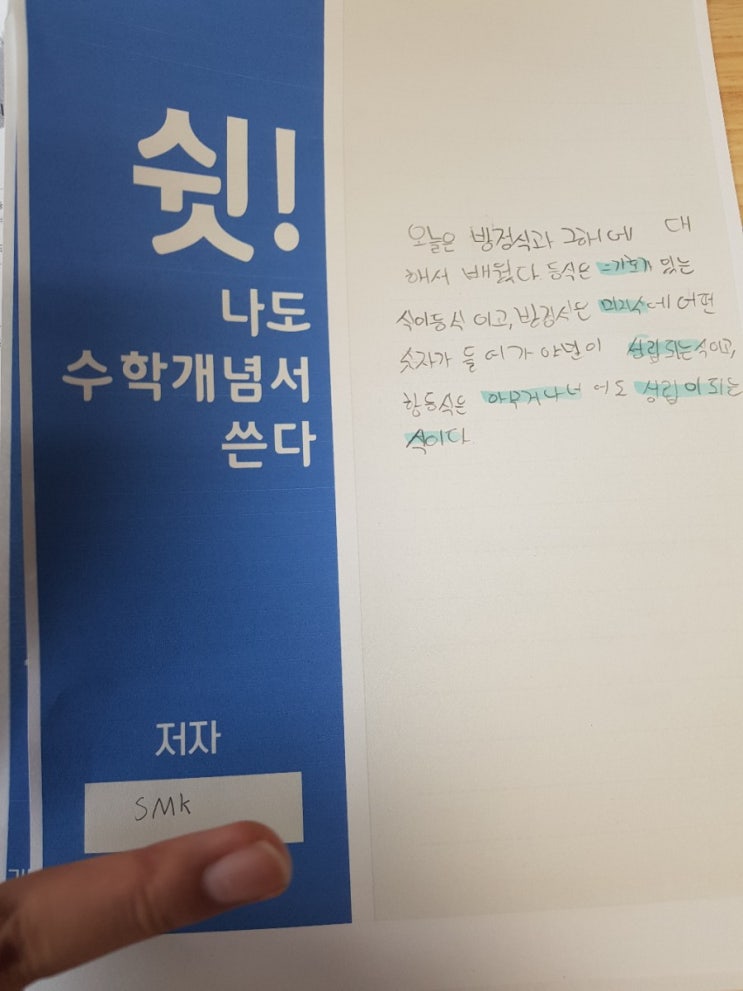 쉿!
나도
수학개념서
쓴다
저자
SMK
오늘은 방정식과 그해에 대
해서 배웠다. 등식은 =기호가 있는
식이등식 이고, 방정식은 미지수에 어떤
숫자가 들어가야면이 성립되는식이고,
항등식은 아무거나 너어도 성립이되는
식이다